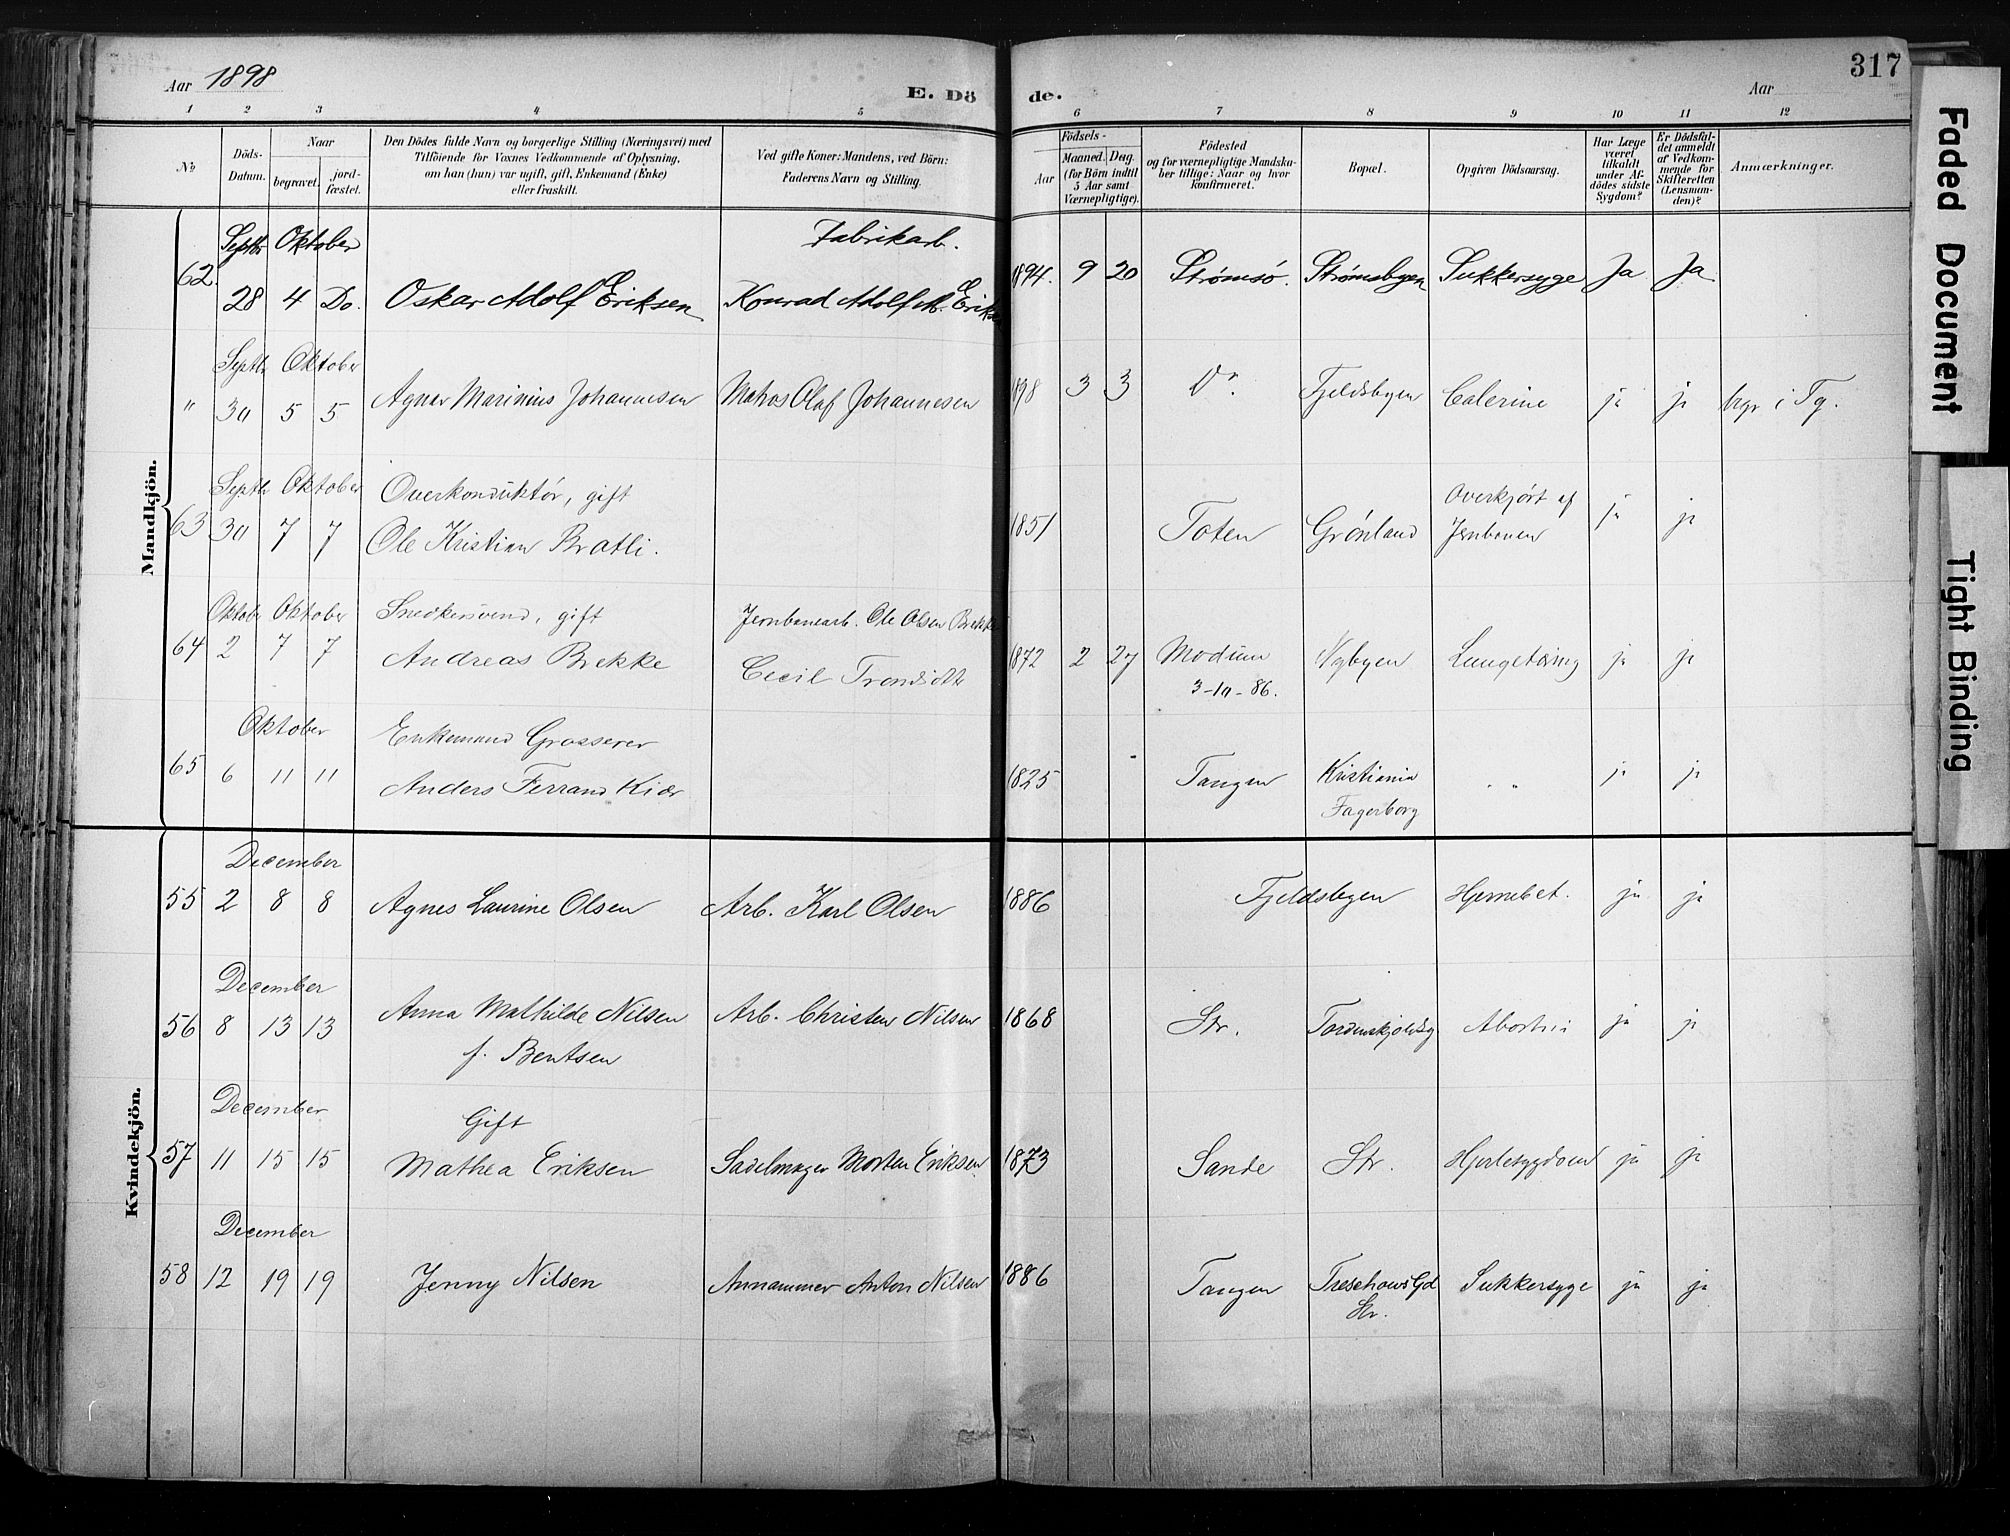 Aar 1898
E. Dö
de.
Aar
317
1 2 3 4 5 6 7 8 9 10 11 12
No
Döds-Datum.
Naar
begravet.
jord-fæstet.
Den Dödes fulde Navn og borgerlige Stilling (Næringsvei) med
Tilföiende for Voxnes Vedkommende af Oplysning,
om han (hun) var ugift, gift, Enkemand (Enke)
eller fraskilt.
Ved gifte Koner: Mandens, ved Börn:
Faderens Navn og Stilling.
Födsels-
Aar
Maaned. Dag.
(for Börn indtil
5 Aar samt
Værnepligtige).
Födested
og for værnepligtige Mandska-
ber tillige: Naar og hvor
konfirmeret.
Bopæl.
Opgiven Dödsaarsag.
Har Læge
været
tilkaldt
under Af-
dödes sidste
Sygdom?
Er Dödsfal-
det anmeldt
af Vedkom-
mende for
Skifteretten
(Lensman-
den)?
Anmærkninger.
Mandkjön.
Septbr Oktober Fabrikarb.
62. 28 4 Do. Oskar Adolf Eriksen Konrad Adolf M. Eriksen 1894. 9 20 Strømsø. Strømsbyen Sukkersyge Ja Ja
Septbr Oktober
" 30 5 5 Agnar Marinius Johannesen Matros Olaf Johannesen 1898 3 3 Do. Fjeldsbyen Calerine ja ja bgr i Tg.
Septbr Oktober Overkonduktór, gift Overkjórt af
63 30 7 7 Ole Kristian Bratli. 1851 Toten Grónland Jernbanen ja ja
Oktober Oktober Snedkersvend, gift Jernbanearb. Ole Olsen Brekke
64 2 7 7 Andreas Brekke Cecil 1872 2 27 Modum Nybyen Lungetæring ja ja
3-10-86.
Oktober Enkemand Grosserer
65 6 11 11 Anders Ferrand Kiær 1825 Tangen Kristiania " " ja ja
Fagerborg
Kvindekjön.
December
55 2 8 8 Agnes Laurine Olsen Arb. Karl Olsen 1886 Fjeldsbyen Hjernebet. ja ja
December
56 8 13 13 Anna Mathilde Nilsen Arb. Christen Nilsen 1868 Str. Tordenskjoldsg ja ja
f. Bentsen
December Gift
57 11 15 15 Mathea Eriksen Sadelmager Morten Eriksen 1873 Sande Str. Hjertesygdom ja ja
December
58 12 19 19 Jenny Nilsen Anton Nilsen 1886 Tangen Treschows Gd Sukkersyge ja ja
Str.
Faded Document
Tight Binding